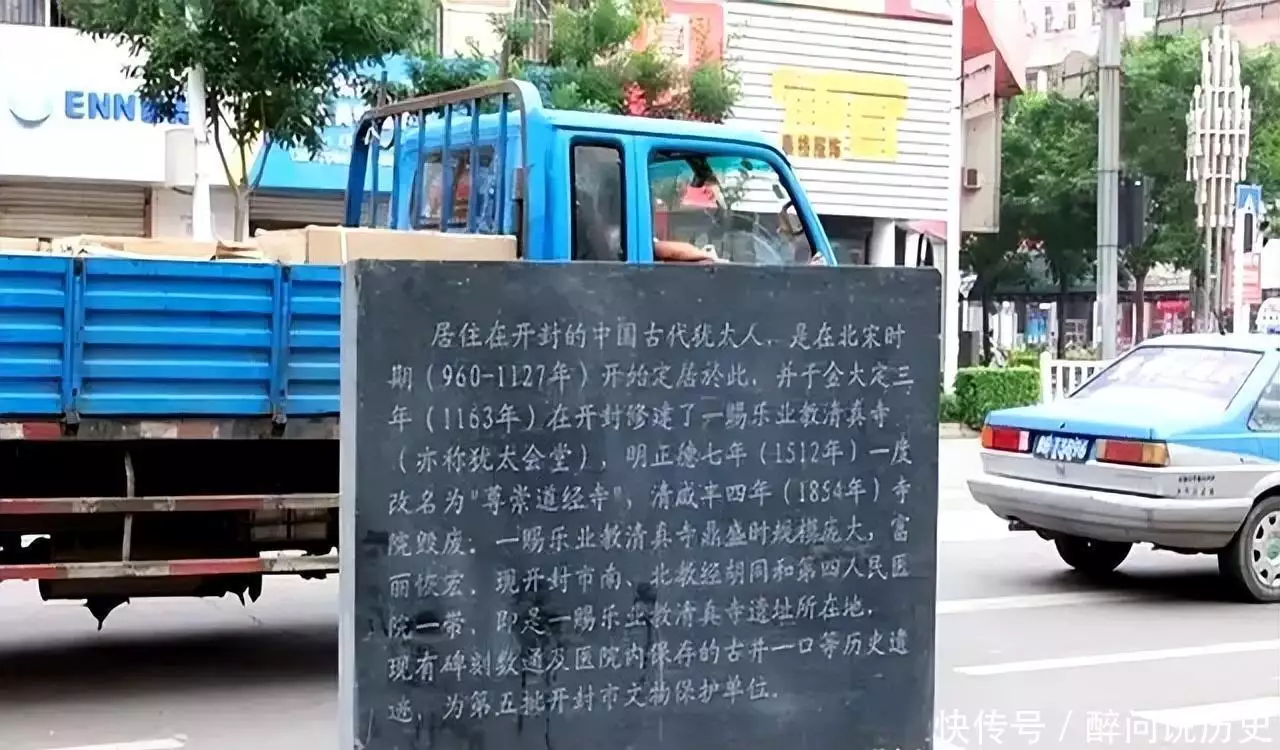 ENN
居住在开封的中国古代犹太人，是在北宋时
期（960-1127年）开始定居於此，并于金大定三
年（1163年）在开封修建了一赐乐业教清真寺
（亦称犹太会堂），明正德七年（1512年）一度
改名为"尊崇道经寺"，清咸丰四年（1854年）寺
院毁废。一赐乐业教清真寺鼎盛时规模庞大，富
丽恢宏，现开封市南、北教经胡同和第四人民医
院一带，即是一赐乐业教清真寺遗址所在地，
现有碑刻数通及医院内保存的古井一口等历史遗
迹，为第五批开封市文物保护单位。
快传号 / 醉问说历史